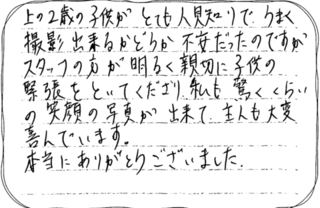 上の2歳の子供がとても人見知りで、うまく
撮影出来るかどうか不安だったのですが
スタッフの方が明るく親切に子供の
緊張をといてくださり、私も驚くくらい
の笑顔の写真が出来て、主人も大変
喜んでいます。
本当にありがとうございました。